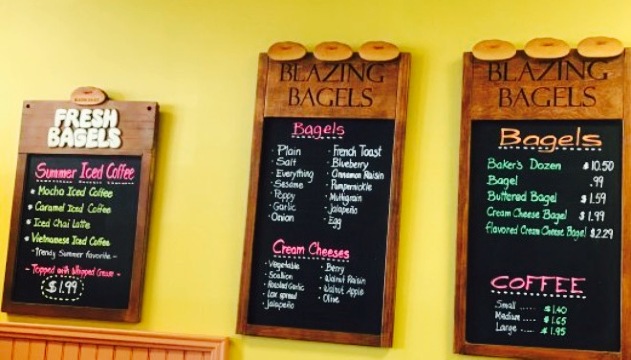 FRESH
BAGELS
Summer Iced Coffee
Mocha Iced Coffee
Caramel Iced Coffee
Iced Chai Latte
Vietnamese Iced Coffee
-Trendy Summer favorite-
-Topped with Whipped Cream-
$1.99
BLAZING
BAGELS
Bagels
· Plain
· Salt
· Everything
· Sesame
· Poppy
· Garlic
· Onion
· French Toast
· Blueberry
· Cinnamon Raisin
· Pumpernickle
· Multigrain
· Jalapeño
· Egg
Cream Cheeses
· Vegetable
· Scallion
· Roasted Garlic
· Low spread
· Jalapeño
· Berry
· Walnut Raisin
· Walnut Apple
· Olive
BLAZING
BAGELS
Bagels
Baker's Dozen $10.50
Bagel .99
Buttered Bagel $1.59
Cream Cheese Bagel $1.99
flavored Cream Cheese Bagel $2.29
COFFEE
Small ..... $1.40
Medium .... $1.65
Large .... $1.95